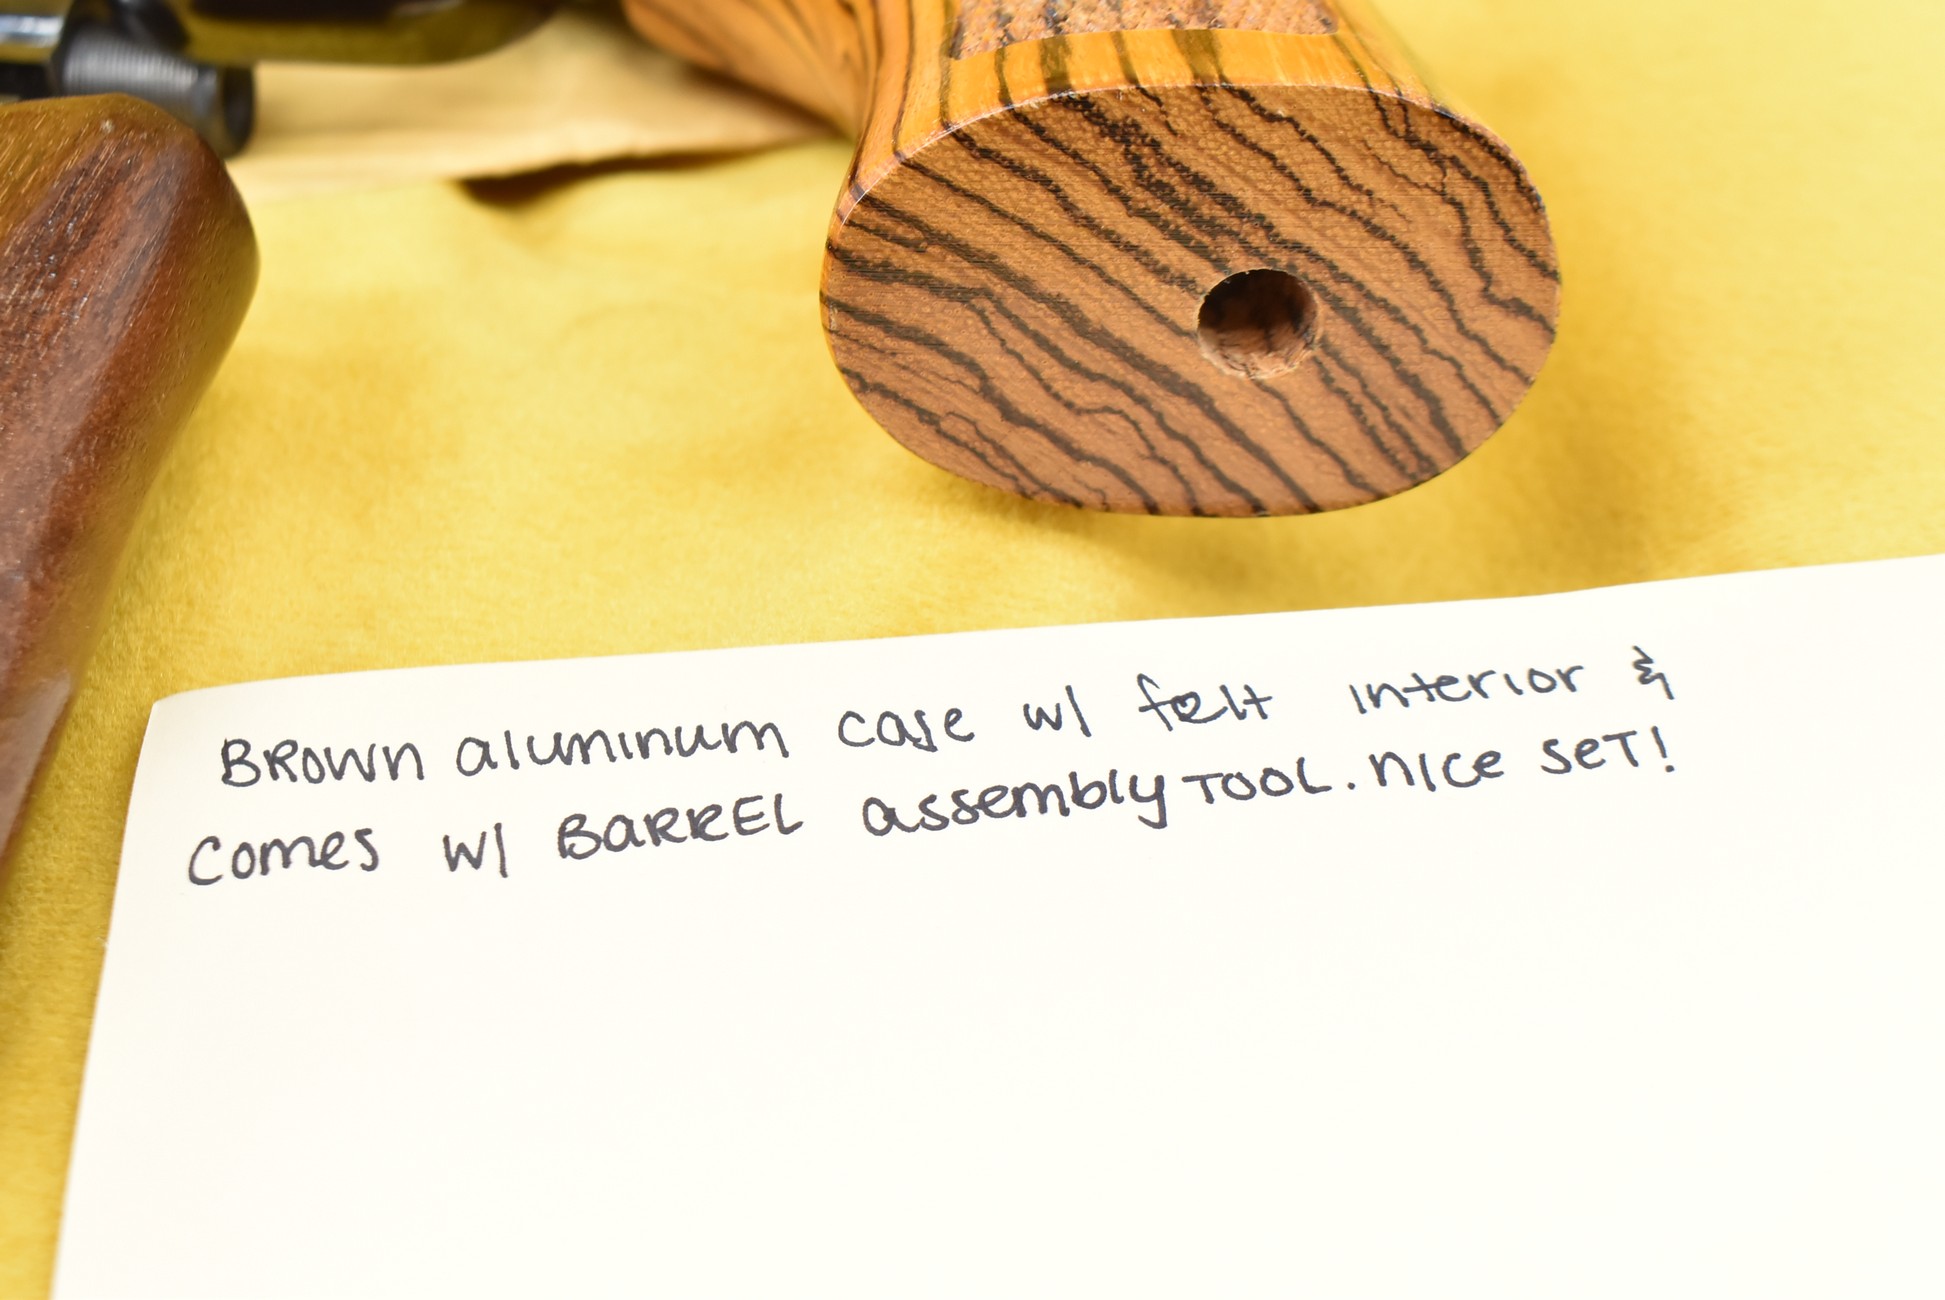 BROWN aluminum case w/ felt interior &
comes w/ BARREL assembly TOOL. nice seT!